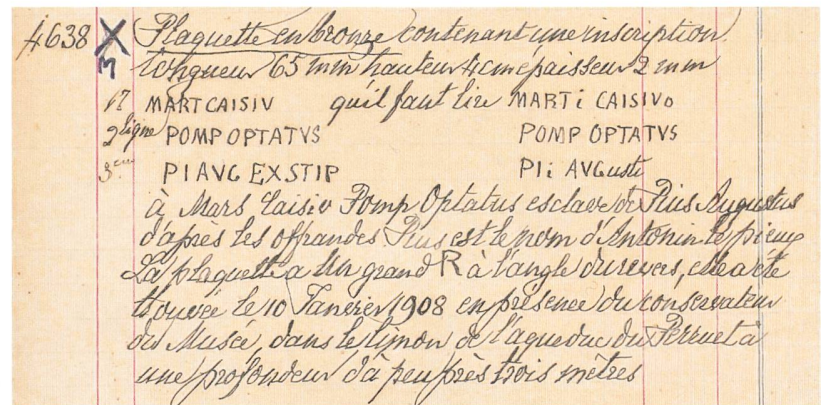 4638 X Plaquette en bronze contenant une inscription.
M longueur 65 mm hauteur 4 cm épaisseur 2 mm
MART CAISIV qu'il faut lire MARTi CAISIVo
2 ligne POMP OPTATVS POMP OPTATVS
3 PI AVG EX STIP PIi AVGusti
à Mars Caisiv Pomp Optatus esclave de Pius Augustus
d'après les offrandes Pius est le nom d'Antonin le pieux
La plaquette a un grand R à l'angle du revers, elle a été
trouvée le 10 Janvier 1908 en présence du conservateur
du Musée, dans le limon de l'aqueduc du Perruet à
une profondeur d'à peu près trois mètres